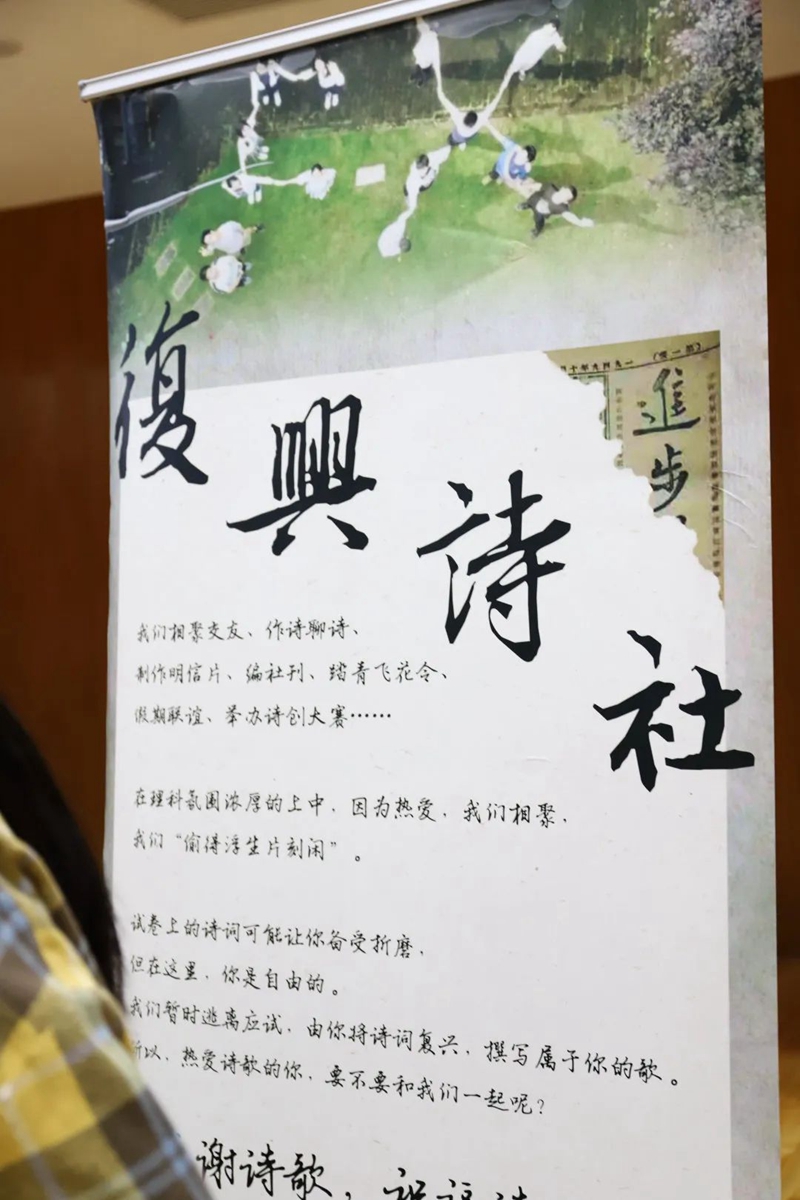 復興詩社
進步
我们相聚交友、作诗聊诗、
制作明信片、编社刊、踏青飞花令、
假期联谊、举办诗创大赛……
在理科氛围浓厚的上中，因为热爱，我们相聚，
我们“偷得浮生片刻闲”。
试卷上的诗词可能让你备受折磨，
但在这里，你是自由的。
我们暂时逃离应试，由你将诗词复兴，撰写属于你的歌。
所以，热爱诗歌的你，要不要和我们一起呢？
谢诗歌，祝福诗